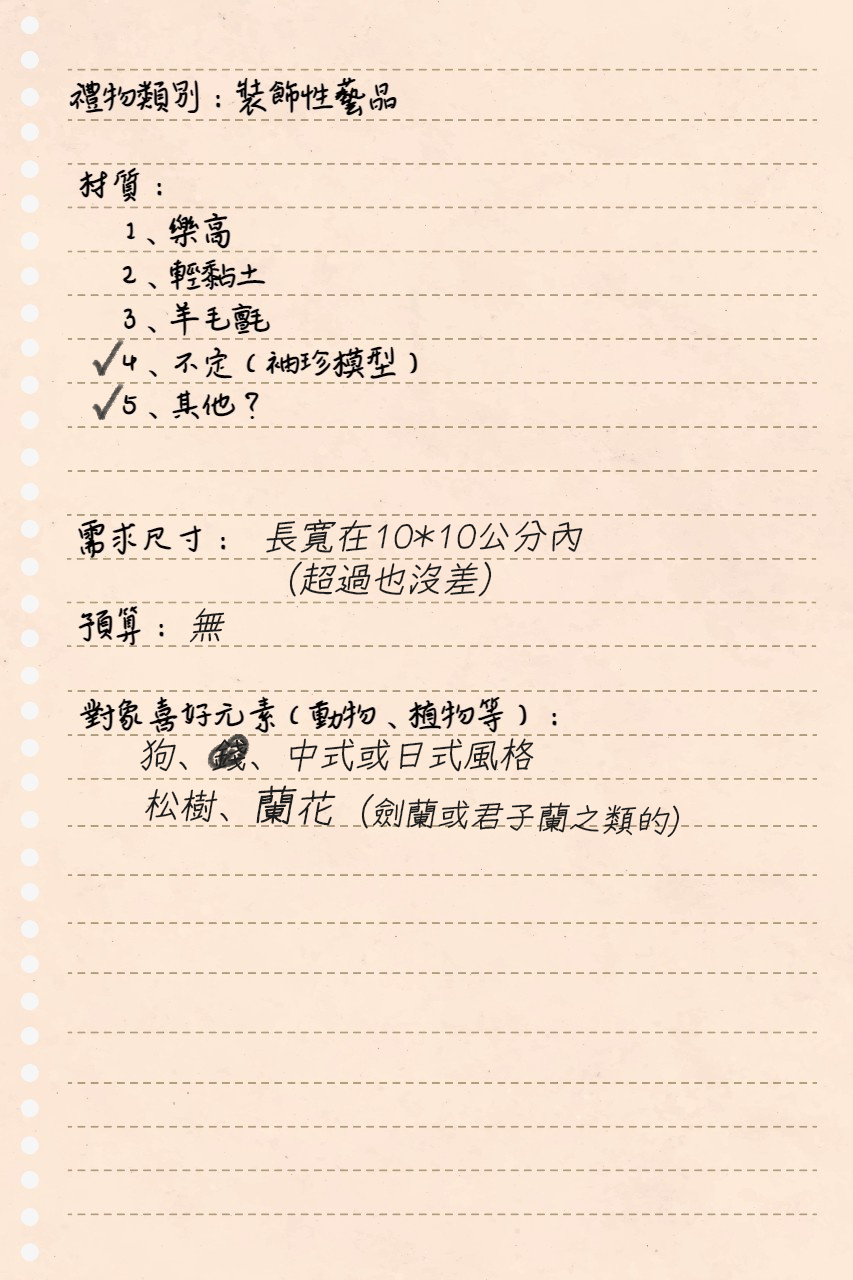 禮物類別：裝飾性藝品
材質：
1、樂高
2、輕黏土
3、羊毛氈
✓4、不定（袖珍模型）
✓5、其他？
需求尺寸： 長寬在10*10公分內
（超過也沒差）
預算： 無
對象喜好元素（動物、植物等）：
狗、錢、中式或日式風格
松樹、蘭花（劍蘭或君子蘭之類的）